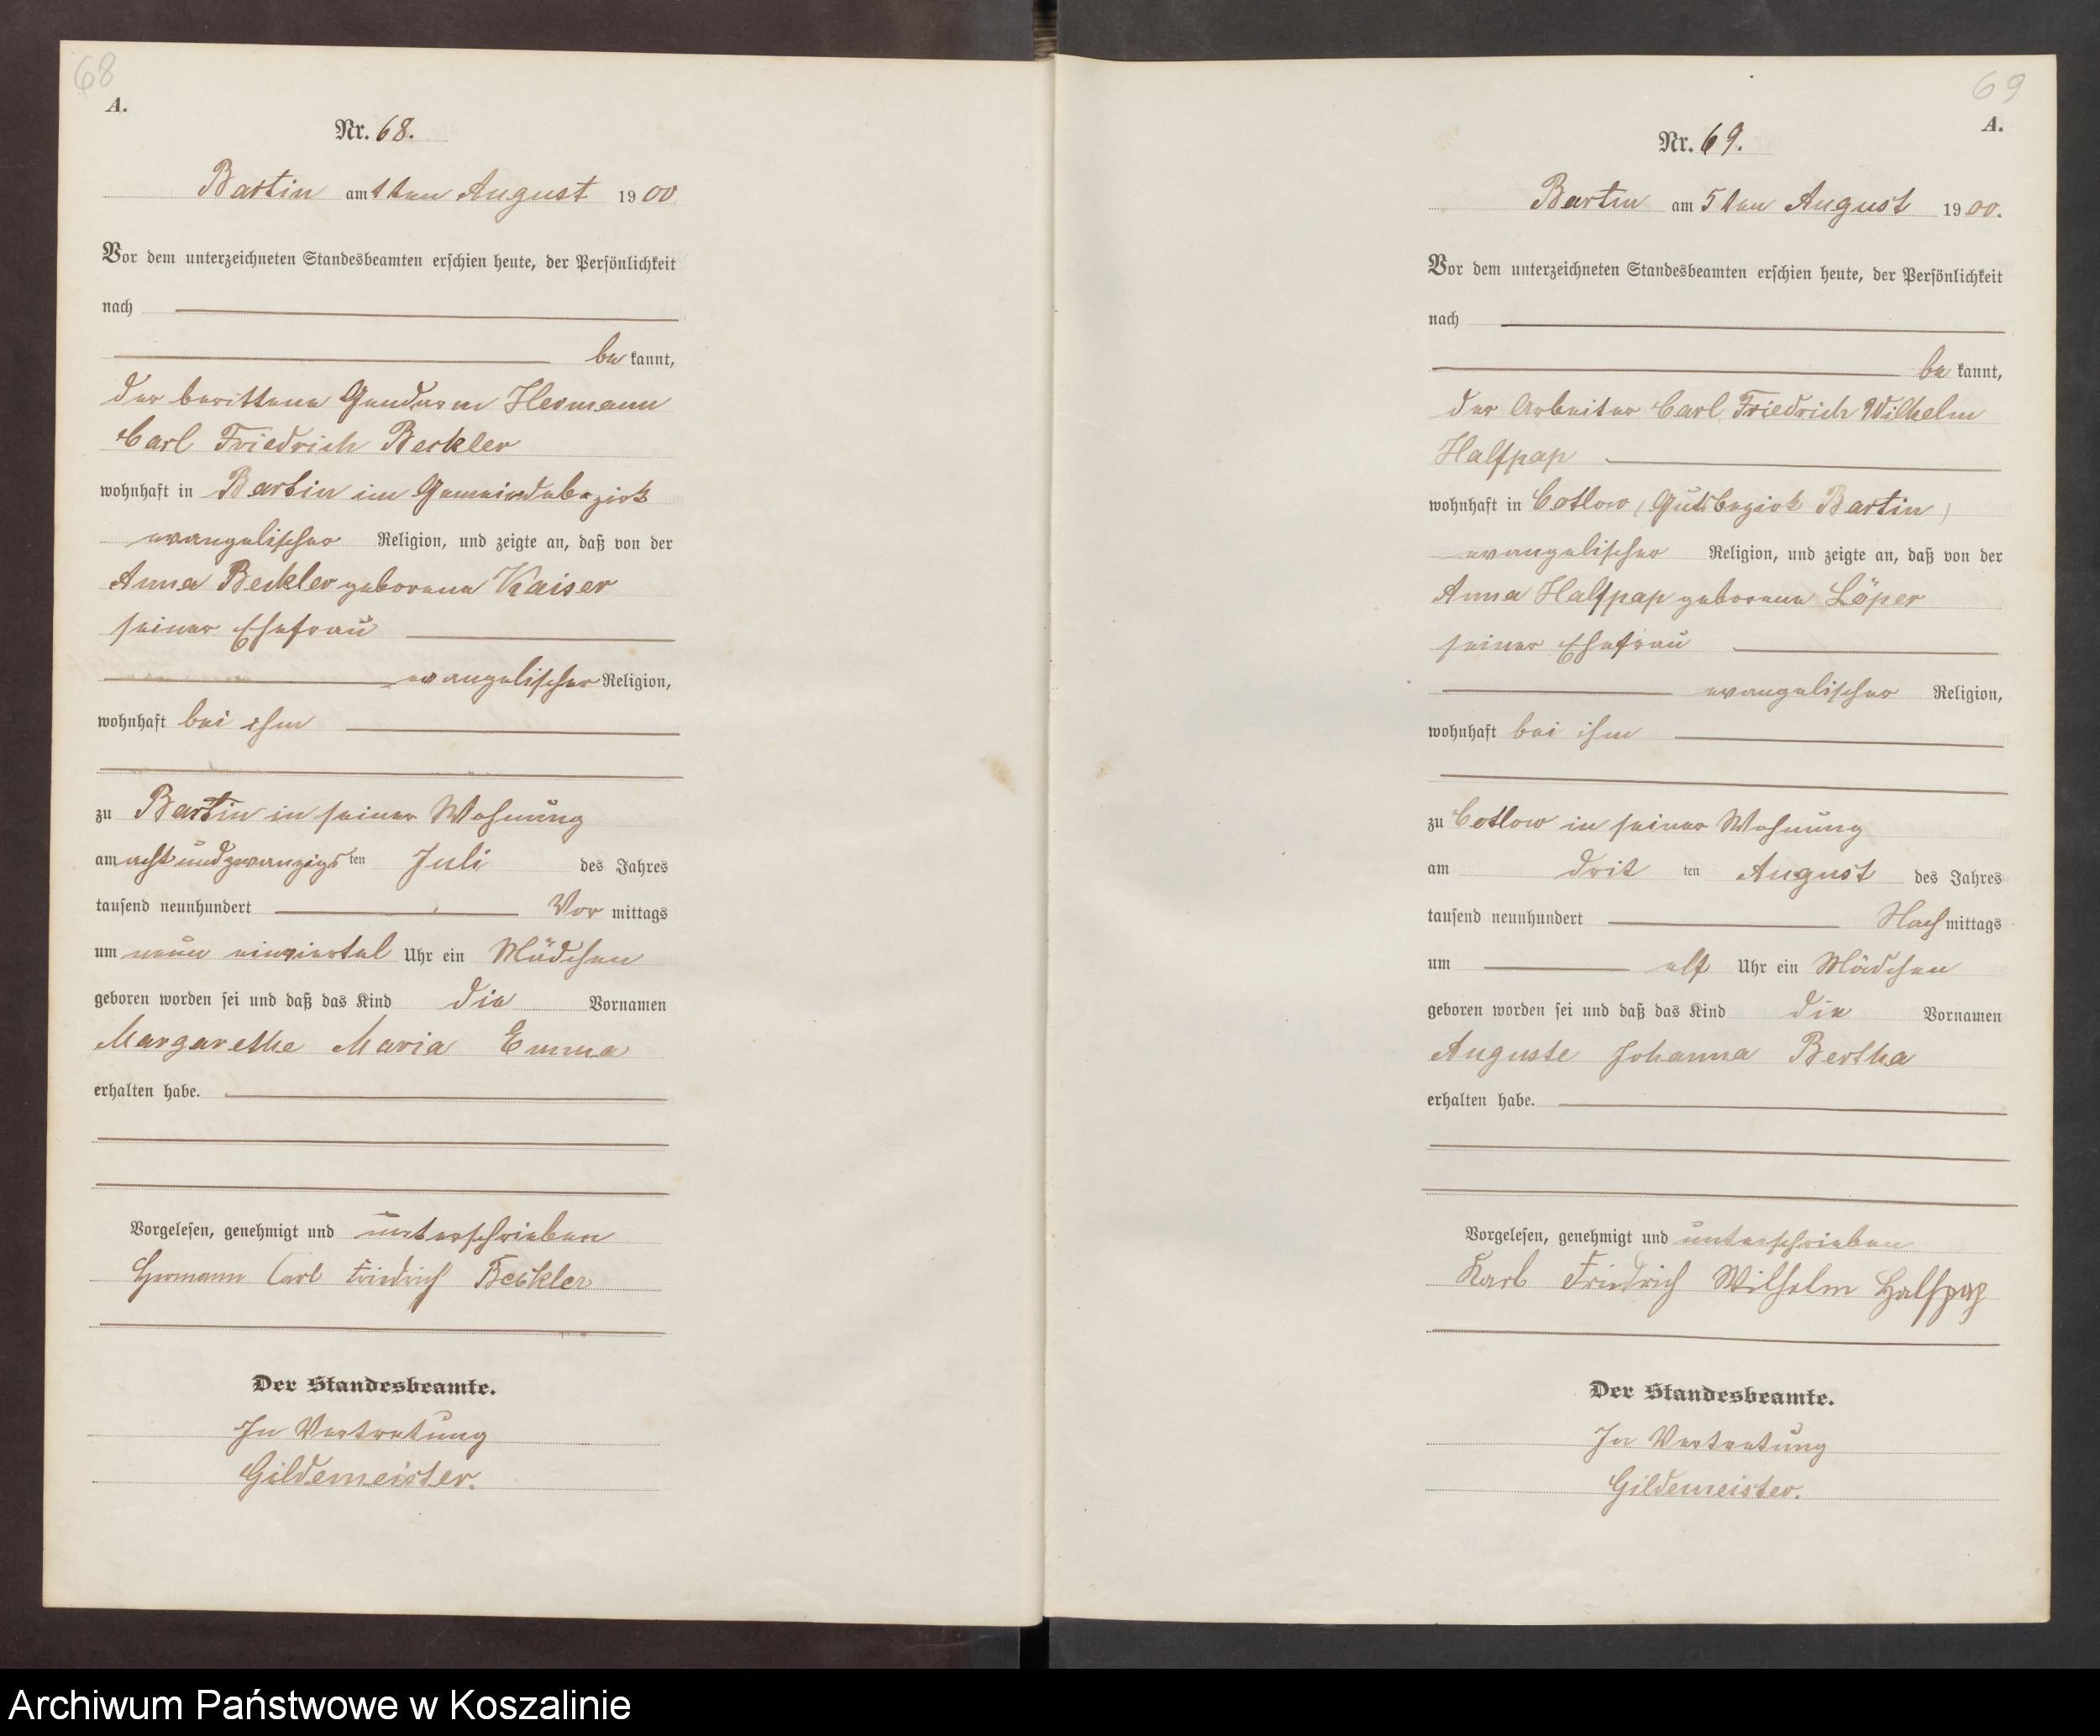 68
A.
Nr. 68.
Bartin am 1ten August 1900
Vor dem unterzeichneten Standesbeamten erschien heute, der Persönlichkeit
nach
bekannt,
der berittene Gendarm Hermann
Carl Friedrich Beckler
wohnhaft in Bartin im Gemeindebezirk
evangelischer Religion, und zeigte an, daß von der
Anna Beckler geborene Kaiser
seiner Ehefrau
evangelischer Religion,
wohnhaft bei ihm
zu Bartin in seiner Wohnung
am acht und zwanzigsten Juli des Jahres
tausend neunhundert Vormittags
um neun einviertel Uhr ein Mädchen
geboren worden sei und daß das Kind die Vornamen
Margarethe Maria Emma
erhalten habe.
Vorgelesen, genehmigt und unterschrieben
Hermann Carl Friedrich Beckler
Der Standesbeamte.
In Vertretung
Gildemeister.
69
A.
Nr. 69.
Bartin am 5ten August 1900.
Vor dem unterzeichneten Standesbeamten erschien heute, der Persönlichkeit
nach
bekannt,
der Arbeiter Carl Friedrich Wilhelm
Halfpap
wohnhaft in Cotlow (Gutsbezirk Bartin)
evangelischer Religion, und zeigte an, daß von der
Anna Halfpap geborene Löper
seiner Ehefrau
evangelischer Religion,
wohnhaft bei ihm
zu Cotlow in seiner Wohnung
am dritten August des Jahres
tausend neunhundert Nachmittags
um elf Uhr ein Mädchen
geboren worden sei und daß das Kind die Vornamen
Auguste Johanna Bertha
erhalten habe.
Vorgelesen, genehmigt und unterschrieben
Karl Friedrich Wilhelm Halfpap
Der Standesbeamte.
In Vertretung
Gildemeister.
Archiwum Państwowe w Koszalinie